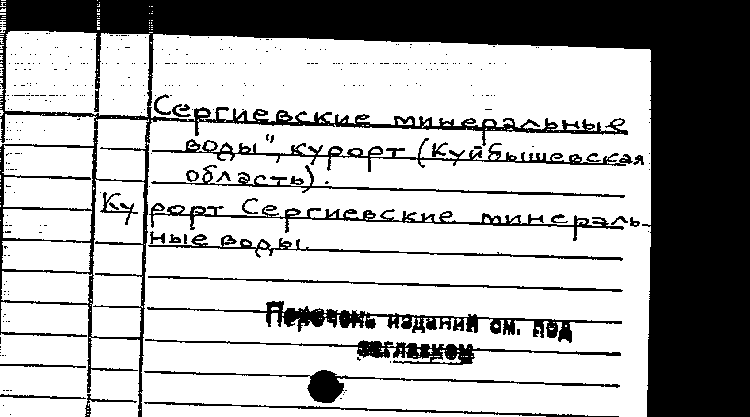 Сергиевские минеральные
воды", курорт (Куйбышевская
область).
Курорт Сергиевские минераль-
ные воды.
Перечень изданий см. под
заглавием